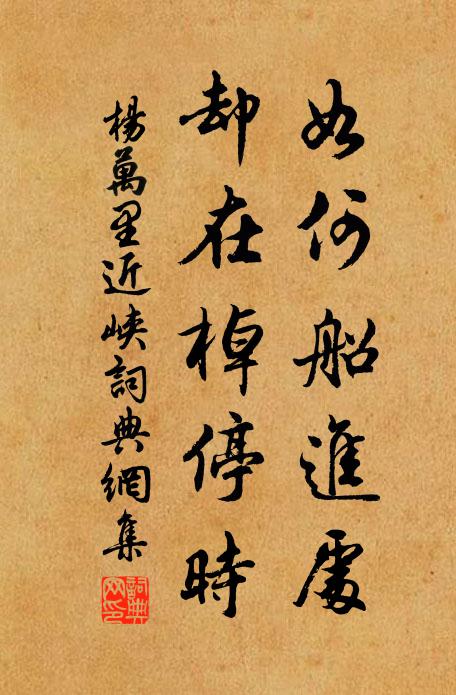 如何船進處
却在棹停時
楊萬里近峽詞典網集
詞典網印